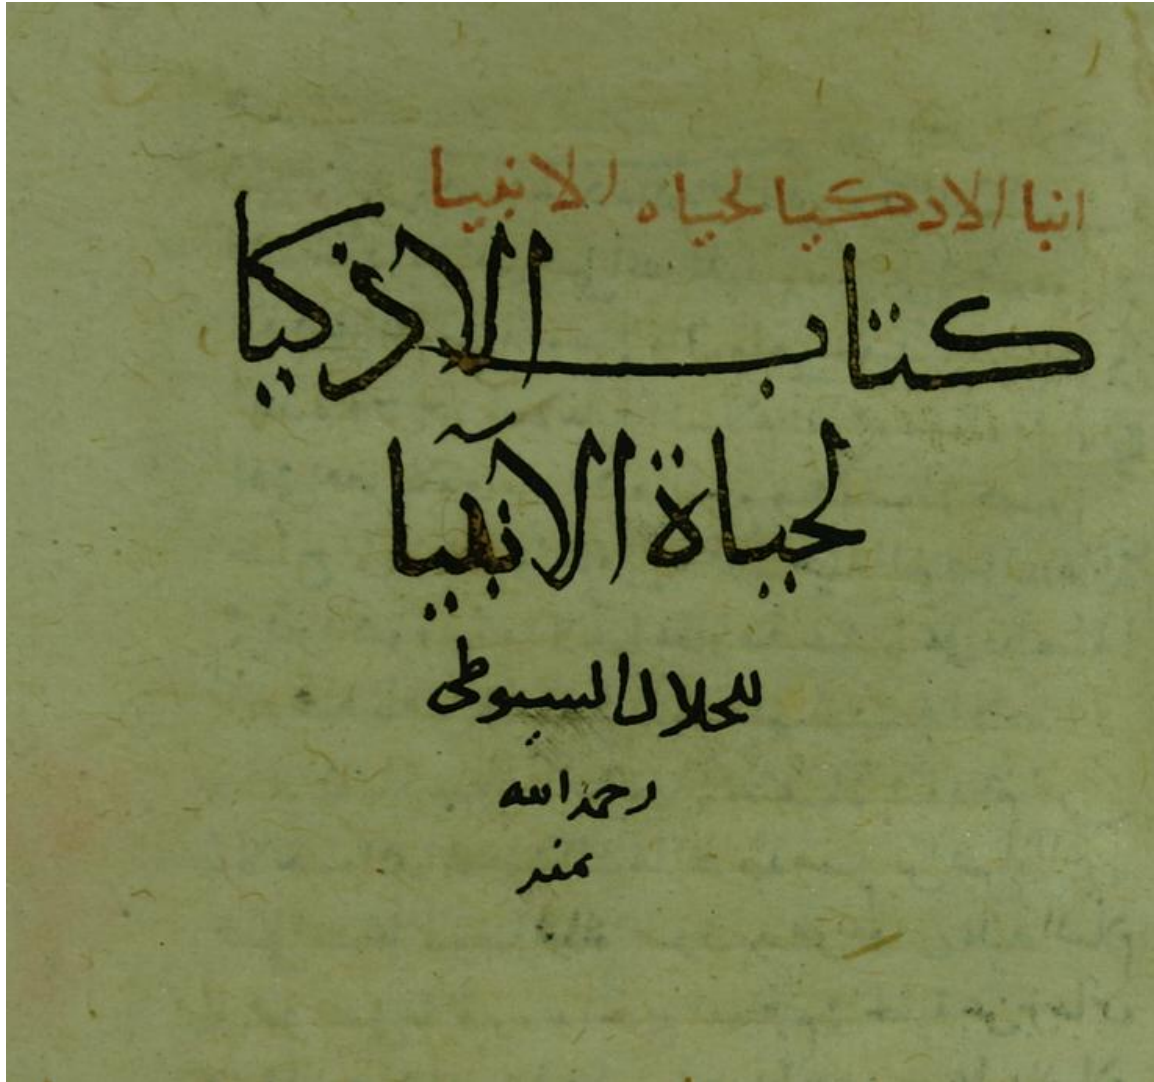 انبا الادكيا لحياه الانبيا
كتاب الاذكيا
لحياة الانبيا
للجلال السيوطى
رحمه الله